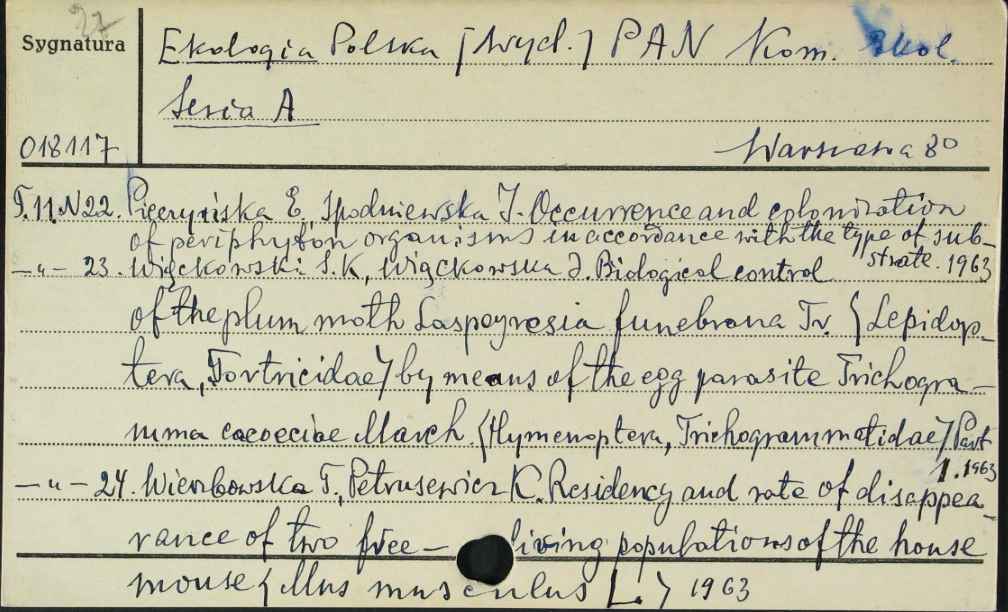 27
Sygnatura
Ekologia Polska [wyd.] PAN Kom. Ekol.
Seria A
018117
Warszawa 80
T.11.N22. Pieczyńska E., Spodniewska J. Occurrence and colonization
of periphyton organisms in accordance with the type of sub-
strate. 1963
-„- 23. Więckowski S.K., Więckowska J. Biological control
of the plum moth Laspeyresia funebrana Tr. (Lepidop-
tera, Tortricidae) by means of the egg parasite Trichogra-
mma cacoeciae March. (Hymenoptera, Trichogrammatidae) Part
1. 1963
-„- 24. Wierzbowska T., Petrusewicz K. Residency and rate of disappea-
rance of two free - living populations of the house
mouse (Mus musculus L.) 1963